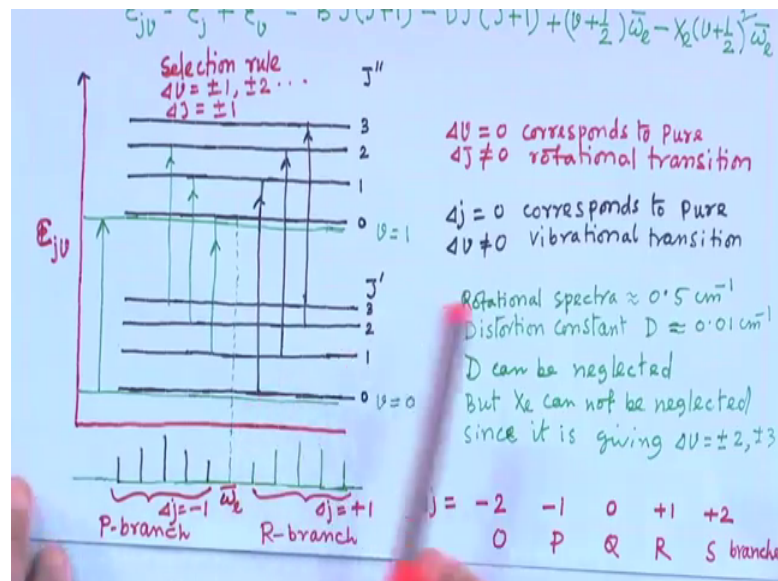 ε_jv = ε_j + ε_v = BJ(J+1) - DJ²(J+1)² + (v+1/2)ω̄e - Xe(v+1/2)² ω̄e
Selection rule
Δv = ±1, ±2 ...
Δj = ±1
J''
3
2
1
0 v=1
E_jv
J'
3
2
1
0 v=0
Δj=-1 ω̄e Δj=+1
P-branch R-branch
Δv = 0 corresponds to pure
Δj ≠ 0 rotational transition
Δj = 0 corresponds to pure
Δv ≠ 0 vibrational transition
Rotational spectra ≈ 0.5 cm⁻¹
Distortion constant D ≈ 0.01 cm⁻¹
D can be neglected
But Xe can not be neglected
since it is giving Δv = ±2, ±3
j = -2 -1 0 +1 +2
O P Q R S branche